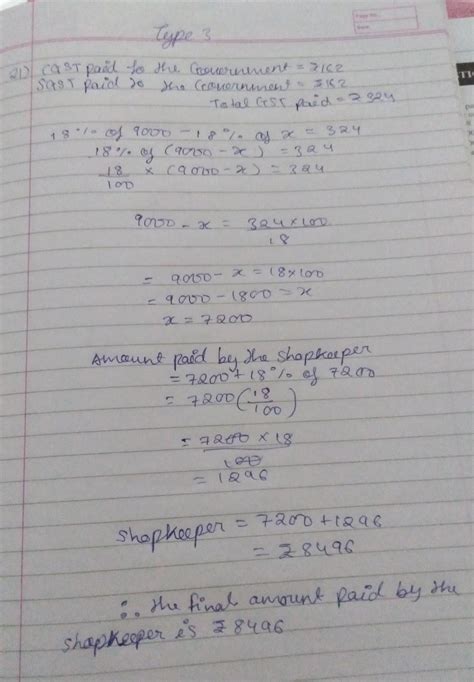 Type 3
21) CGST paid to the Government = ₹162
SGST paid to the Government = ₹162
Total GST paid = ₹324
18% of 9000 - 18% of x = 324
18% of (9000 - x) = 324
18/100 × (9000 - x) = 324
9000 - x = 324×100/18
= 9000 - x = 18×100
= 9000 - 1800 = x
x = 7200
Amount paid by the shopkeeper
= 7200 + 18% of 7200
= 7200 (18/100)
= 7200 × 18/100
= 1296
Shopkeeper = 7200 + 1296
= ₹8496
∴ the final amount paid by the
shopkeeper is ₹8496